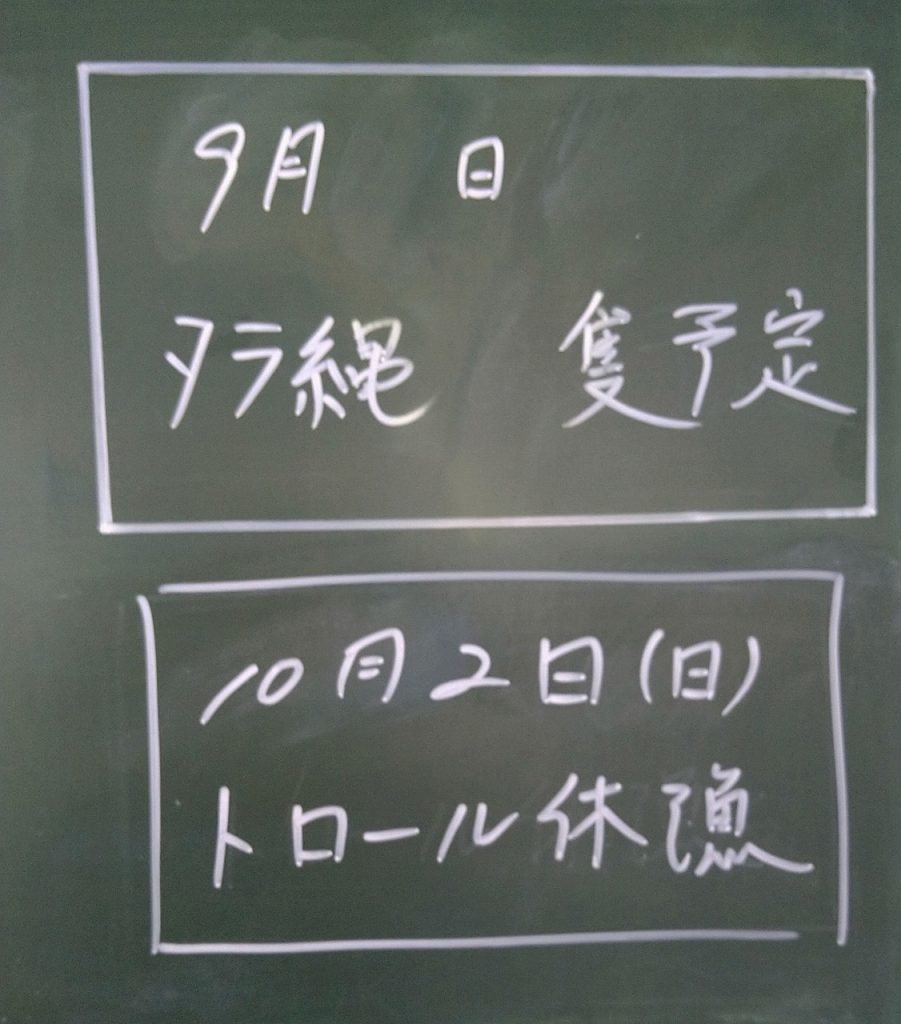 9月 日
タラ縄 隻予定
10月2日(日)
トロール休漁